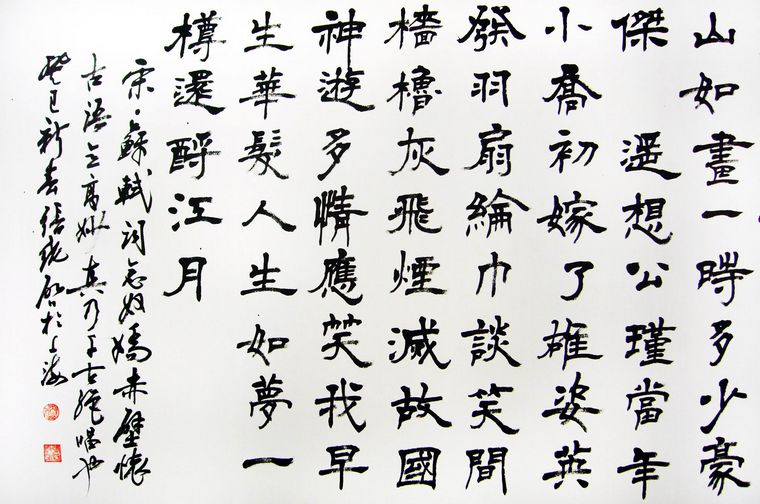 山如畫一時多少豪
傑 遥想公瑾當年
小喬初嫁了雄姿英
發羽扇綸巾談笑間
檣櫓灰飛煙滅故國
神遊多情應笑我早
生華髮人生如夢一
樽還酹江月
宋、蘇軾詞念奴嬌赤壁懷
古語高妙真乃千古絕唱也
癸巳新春於上海